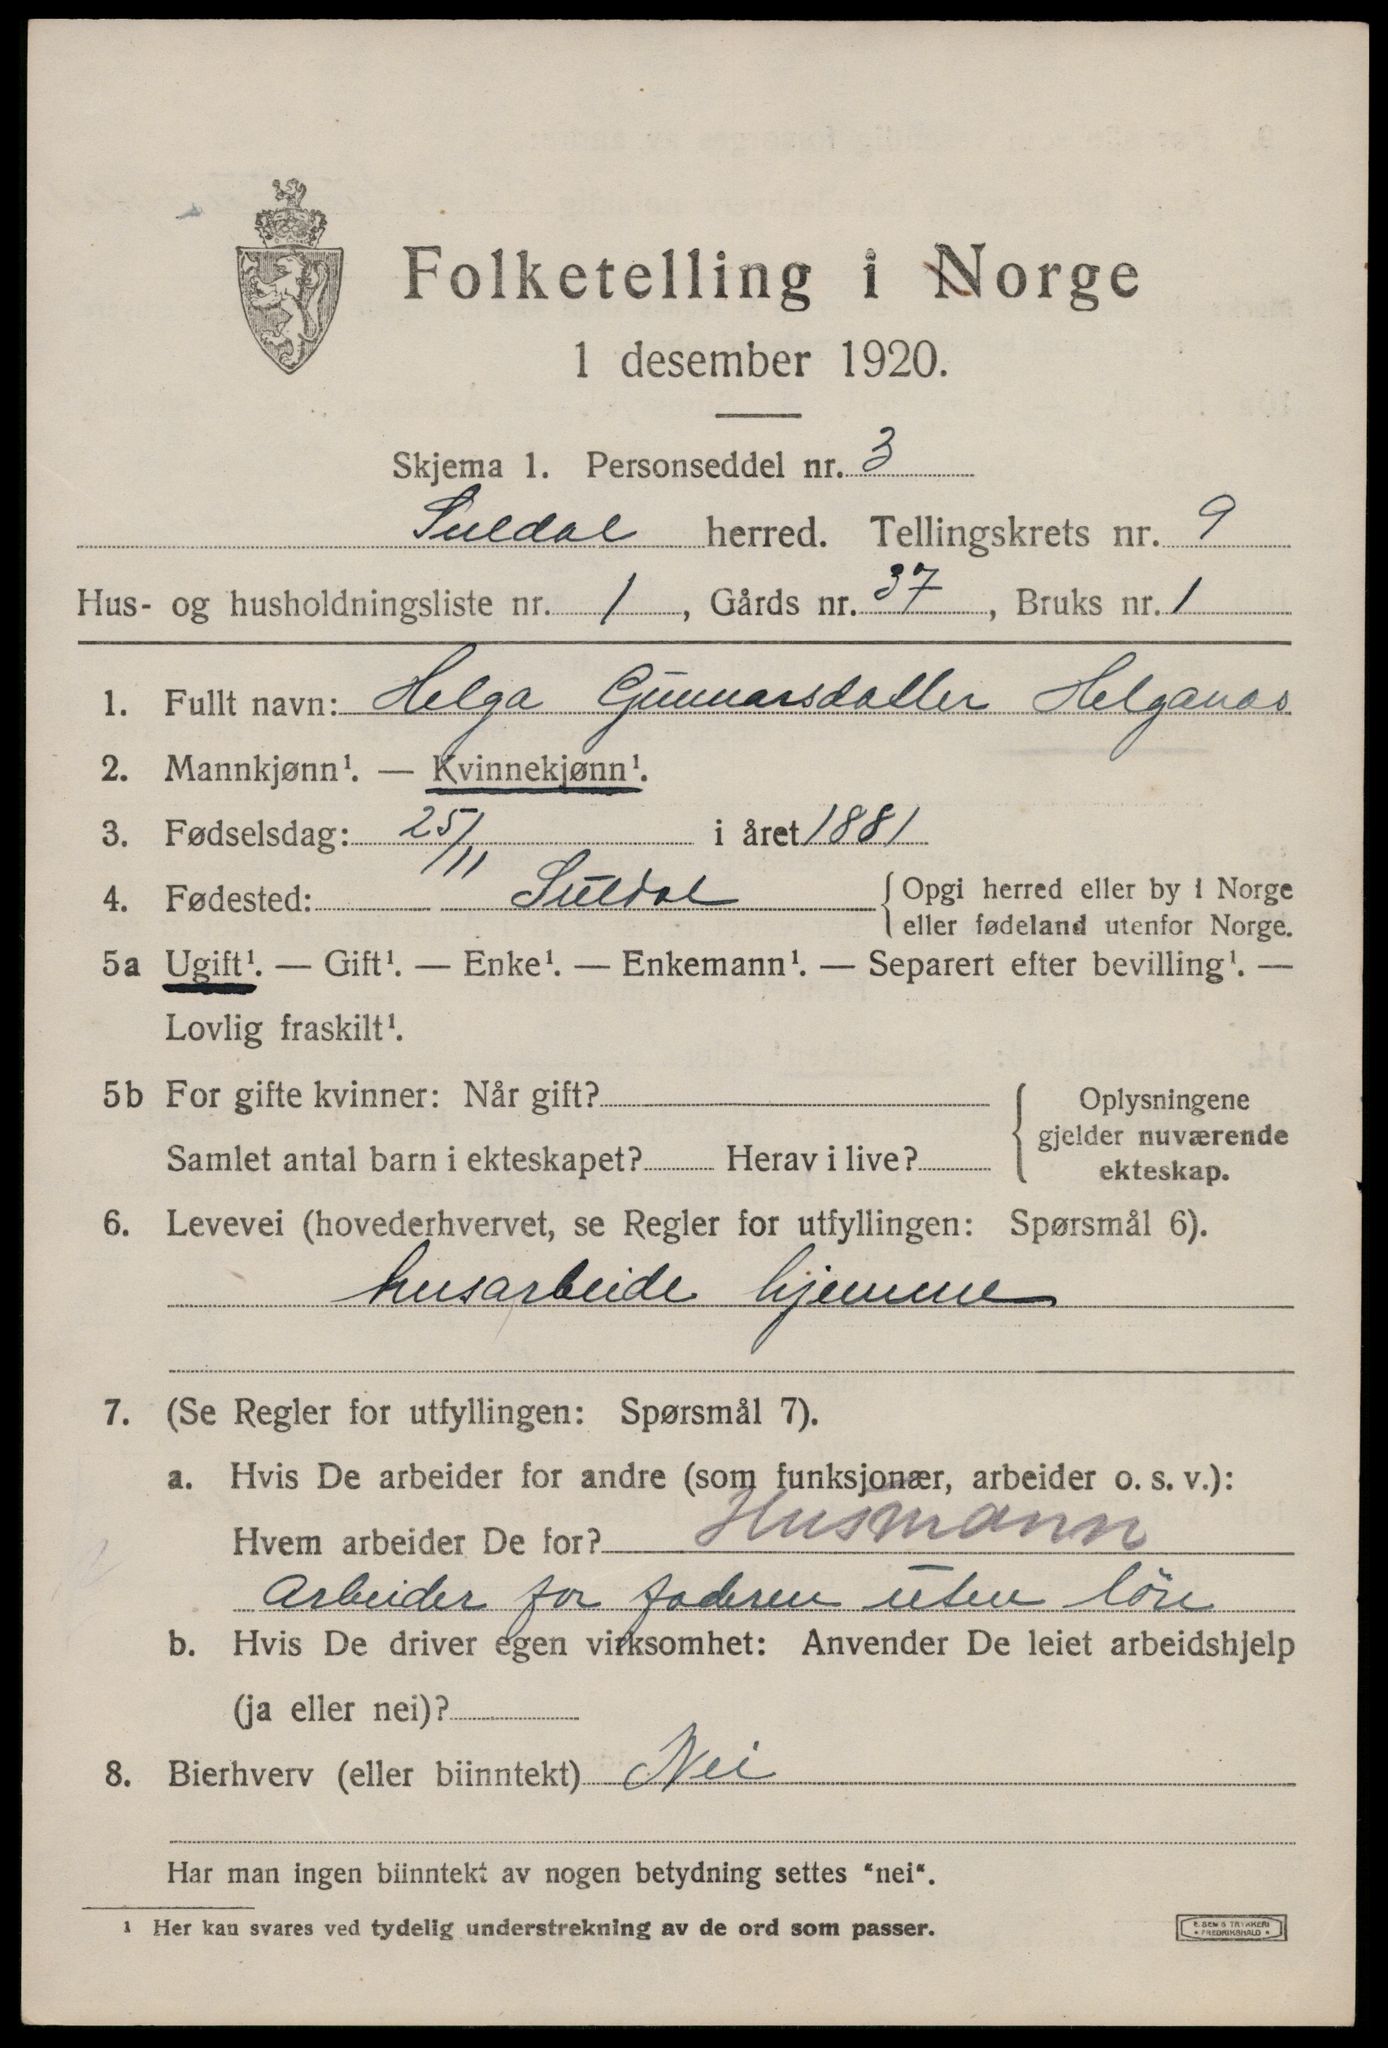 Folketelling i Norge
1 desember 1920.
Skjema 1. Personseddel nr. 3
Suldal herred. Tellingskrets nr. 9
Hus- og husholdningsliste nr. 1, Gårds nr. 37, Bruks nr. 1
1. Fullt navn: Helga Gunnarsdatter Helganas
2. Mannkjønn¹. — Kvinnekjønn¹.
3. Fødselsdag: 25/11 i året 1881
4. Fødested: Suldal { Opgi herred eller by i Norge
eller fødeland utenfor Norge.
5a Ugift¹. — Gift¹. — Enke¹. — Enkemann¹. — Separert efter bevilling¹. —
Lovlig fraskilt¹.
5b For gifte kvinner: Når gift? { Oplysningene
gjelder nuværende
Samlet antal barn i ekteskapet? Herav i live? ekteskap.
6. Levevei (hovederhvervet, se Regler for utfyllingen: Spørsmål 6).
husarbeide hjemme
7. (Se Regler for utfyllingen: Spørsmål 7).
a. Hvis De arbeider for andre (som funksjonær, arbeider o. s. v.):
Hvem arbeider De for? Husmann
Arbeider for faderen uten lön
b. Hvis De driver egen virksomhet: Anvender De leiet arbeidshjelp
(ja eller nei)?
8. Bierhverv (eller biinntekt) Nei
Har man ingen biinntekt av nogen betydning settes "nei".
¹ Her kan svares ved tydelig understrekning av de ord som passer.
E. SEM'S TRYKKERI
* FREDRIKSHALD *